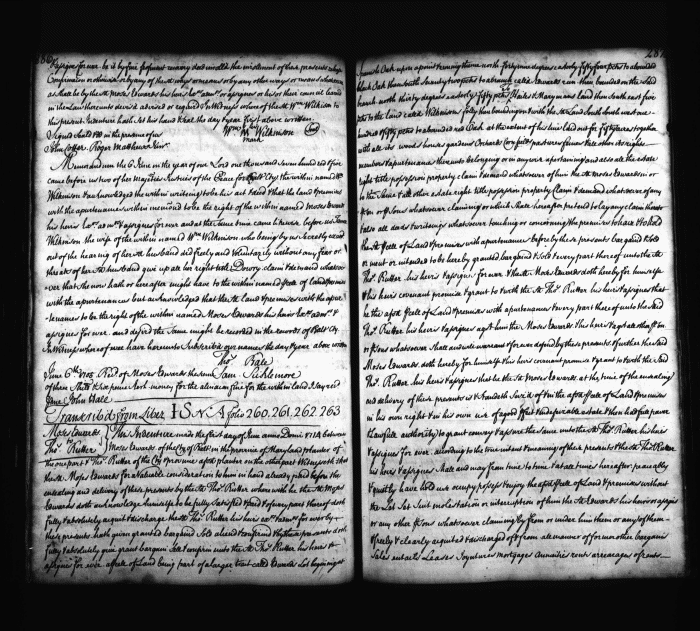 286
assigns for ever be it by fine feofment recovery deed inrolld the inrolement of these presents release
Confirmation or otherwise or by any of the sd ways or means or by any other ways or means whatsoever
as shall be by the sd Moses Edwards his heirs Exrs admrs or assigns or his or their council learned
in the law thereunto devised advised or required In Witness whereof the sd Wm Wilkinson to
this present Indenture hath Set his hand & Seal the day & year first above written.
Signed Seald & dd in the presence of us Wm W Wilkinson Seal
John Cotter. Roger Matthews mark
Memorandum the in the year of our Lord one thousand Seven hundred & five
came before us two of her Majestys Justices of the Peace for Balt Cty the within named Wm
Wilkinson & acknowledged the within writeing to be his act & deed & that the land & premises
with the apurtenances within mentiond to be the right of the within named Moses Edwards
his heirs & assigns for ever and at the Same time came before us Tamar
Wilkinson the wife of the within named Wm Wilkinson who being by us Secretly examd
out of the hearing of her sd husband did freely and Voluntarily without any fear or
threats of her sd husband give up all her right title Dowry claim & demand whatso-
ever that she now hath or hereafter might have to the within named of Land & premises
with the apurtenances but acknowledged that the sd Land & premises with the apur-
tenances to be the right of the within named Moses Edwards his heirs Exrs admrs &
assigns for ever. and desired the Same might be recorded in the records of Balt Cty.
In Witness whereof we have hereunto Subscribed our names the day & year above written
Thos Hale
Sam Sicklemore
June 6th 1705 Recd of Moses Edwards the Sum
of three Shills & Six pence Sterl money for the alienation fine for the within land I say recd
John Hale
Transcribd from Liber I S No A folio 260. 261. 262. 263
Moses Edwards This Indenture made the first day of June anno Domi 1714 between
Thos Rutter Moses Edwards of the Cty of Balt in the province of Maryland planter of
the one part & Thos Rutter of the Cty & province afsd planter on the other part Witnesseth that
the sd Moses Edwards for a valuable consideration to him in hand already paid before the
ensealing and delivery of these presents by the sd Thos Rutter wherewith he the sd Moses
Edwards doth acknowledge himself to be fully Satisfied & paid & of every part thereof doth
fully & absolutely acquit & discharge the sd Thos Rutter his heirs exrs & admrs for ever by
these presents hath given granted bargaind Sold aliend & confirmd & by these presents doth
fully & absolutely give grant bargain Sell & confirm unto the sd Thos Rutter his heirs &
assigns for ever a pcell of Land being part of a larger tract called Edwards Lot begining at
287
Spanish Oak upon a point & runing thence north fortynine degrees easterly fifty four pches to a bounded
black Oak then South Seventy two pches to a branch called Edwards run then bounded on the said
branch north thirty degrees easterly fifty pches to Stails & Maryanns land then South east five
pches to the land called Wilkinsons folly then bounding on & with the sd Land South South west one
hundred & fifty pches to a bounded red Oak at the extent of his line laid out for fifty acres together
with all its woods houses gardens Orchards Cornfields pastures fences & all other its rights
members & apurtenances thereunto belonging or in any wise apertaining and also all the estate
right title possession property claim & demand whatsoever of him the sd Moses Edwards in or
to the Same & all other estate right title possession property Claim & demand whatsoever of any
other person or persons whatsoever claiming or which shall hereafter pretend to lay any claim thereto
& also all deeds & writeings whatsoever touching or concerning the premises to have & to hold
the sd pcell of Land & premises with apurtenances before by these presents bargaind & Sold
or meant or intended to be hereby granted bargaind & Sold & every part thereof unto the sd
Thos Rutter his heirs & assigns for ever & the sd Moses Edwards doth hereby for himself
& his heirs covenant promise & grant to & with the sd Thos Rutter his heirs & assigns that
he the afsd pcell of Land & premises with apurtenances & every part thereof unto the Said
Thos Rutter his heirs & assigns agst him the Moses Edwards & his heirs & agst all other person
or persons whatsoever shall and will warrant & for ever defend by these presents. & further the said
Moses Edwards doth hereby for himself his heirs covenant promise & grant to & with the Said
Thos Rutter his heirs & assigns that he the sd Moses Edwards at the time of the ensealing
and delivery of these presents is & Standeth Seized of & in the afsd pcell of Land & premises
in his own right & in his own use of a good & indefeasible estate & then had full power
& lawfull authority to grant convey & assure the same unto the sd Thos Rutter his heirs &
assigns for ever according to the true intent & meaning of these presents & the sd Thos Rutter
his heirs & assigns shall and may from time to time & at all times hereafter peaceably
& quietly have hold use occupy possess & enjoy the afsd pcell of Land & premises without
the Let Sute molestation or interruption of him the sd Edwards his heirs or assigns
or any other persons whatsoever claiming by from or under him them or any of them
freely & clearly acquited & discharged of & from all manner of former other bargains
Sales entails Leases Joyntures mortgages annuities rents arrearages of rents